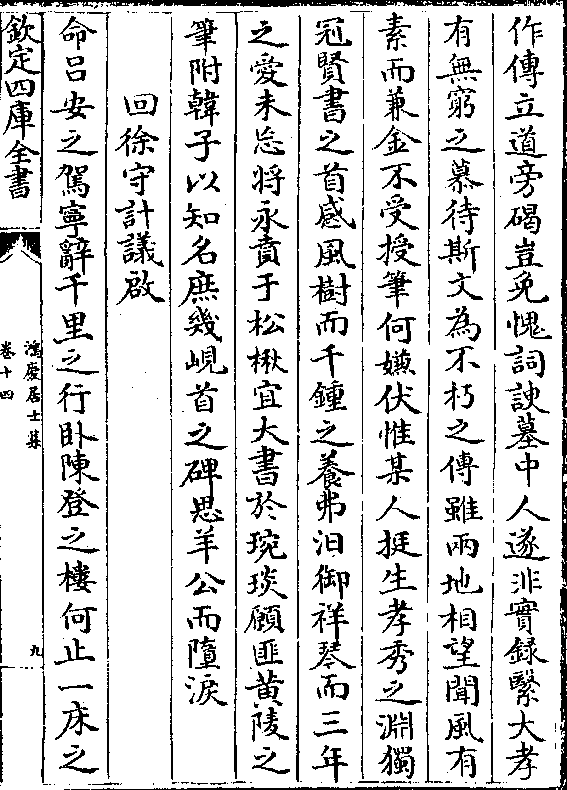 作傳立道旁碣豈免愧詞諛墓中人遂非實録繄大孝
有無窮之慕待斯文為不朽之傳雖兩地相望聞風有
素而兼金不受授筆何嫌伏惟某人挺生孝秀之淵獨
冠賢書之首感風樹而千鍾之養弗洎御祥琴而三年
之愛未忘將永賁于松楸宜大書於琬琰顧匪黄陵之
筆附韓子以知名庶幾峴首之碑思羊公而墮淚
回徐守計議啟
命吕安之駕寧辭千里之行卧陳登之樓何止一床之
欽定四庫全書
鴻慶居士集
卷十四
九